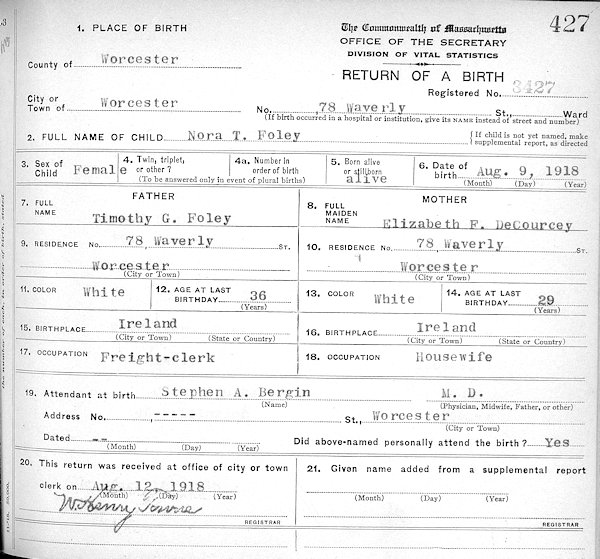 427
1. PLACE OF BIRTH
The Commonwealth of Massachusetts
OFFICE OF THE SECRETARY
DIVISION OF VITAL STATISTICS
RETURN OF A BIRTH
County of Worcester
Registered No. 3427
City or Town of Worcester No. 78 Waverly St., Ward
(If birth occurred in a hospital or institution, give its NAME instead of street and number)
2. FULL NAME OF CHILD Nora T. Foley { If child is not yet named, make supplemental report, as directed
3. Sex of Child Female 4. Twin, triplet, or other ? 4a. Number in order of birth 5. Born alive or stillborn alive 6. Date of birth Aug. 9, 1918
(To be answered only in event of plural births) (Month) (Day) (Year)
FATHER MOTHER
7. FULL NAME Timothy G. Foley 8. FULL MAIDEN NAME Elizabeth F. DeCourcey
9. RESIDENCE No. 78 Waverly ST. 10. RESIDENCE No. 78 Waverly ST.
Worcester Worcester
(City or Town) (City or Town)
11. COLOR White 12. AGE AT LAST BIRTHDAY 36 13. COLOR White 14. AGE AT LAST BIRTHDAY 29
(Years) (Years)
15. BIRTHPLACE Ireland 16. BIRTHPLACE Ireland
(City or Town) (State or Country) (City or Town) (State or Country)
17. OCCUPATION Freight-clerk 18. OCCUPATION Housewife
19. Attendant at birth Stephen A. Bergin M. D.
(Name) (Physician, Midwife, Father, or other)
Address No. ----- St., Worcester
(City or Town)
Dated -- Did above-named personally attend the birth ? Yes
(Month) (Day) (Year)
20. This return was received at office of city or town clerk on Aug. 12, 1918 21. Given name added from a supplemental report
(Month) (Day) (Year) (Month) (Day) (Year)
W. Henry Towne
REGISTRAR REGISTRAR